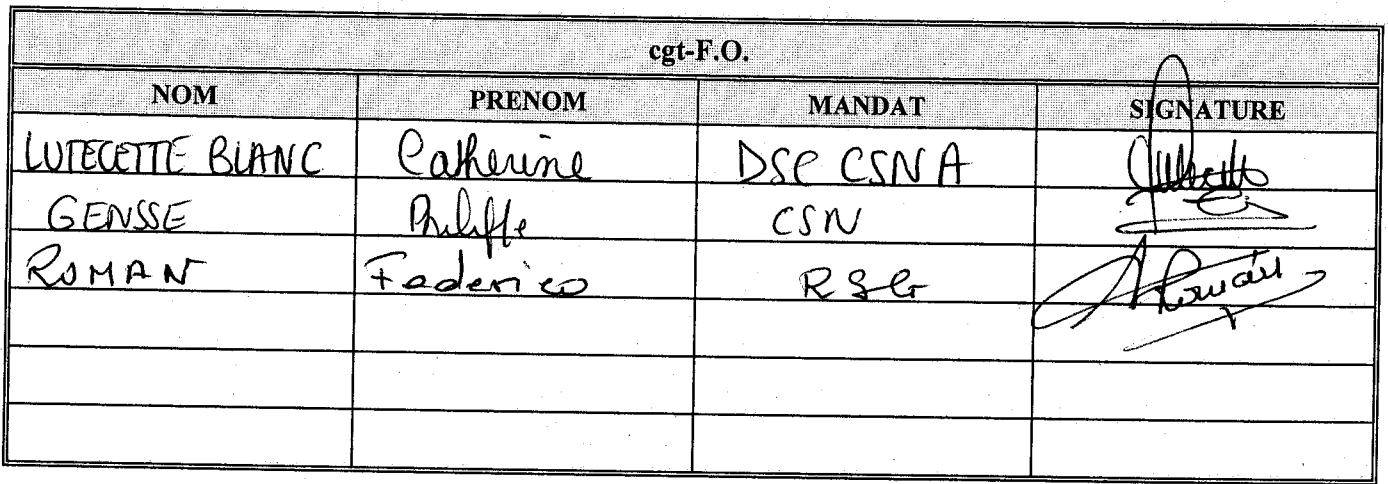 cgt-F.O.
NOM PRENOM MANDAT SIGNATURE
LUTECETTE BLANC Catherine DSC CSNA
GENSSE Philippe CSN
ROMAN Federico Roman